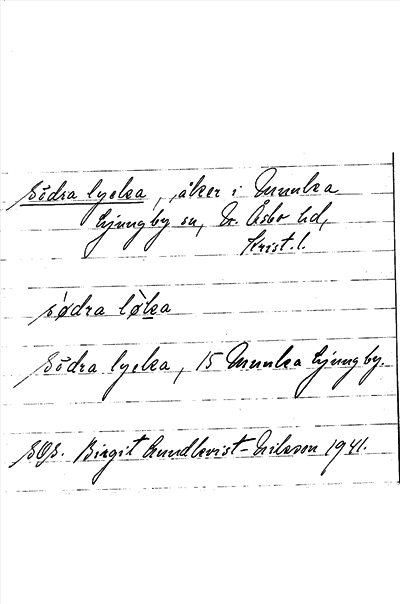 Södra lycka, åker i Munka
Ljungby sn, N. Åsbo hd,
Krist. l.
s'ødra lø̀ka
Södra lycka, 15 Munka Ljungby.
SOS. Birgit Lundkvist-Nilsson 1941.